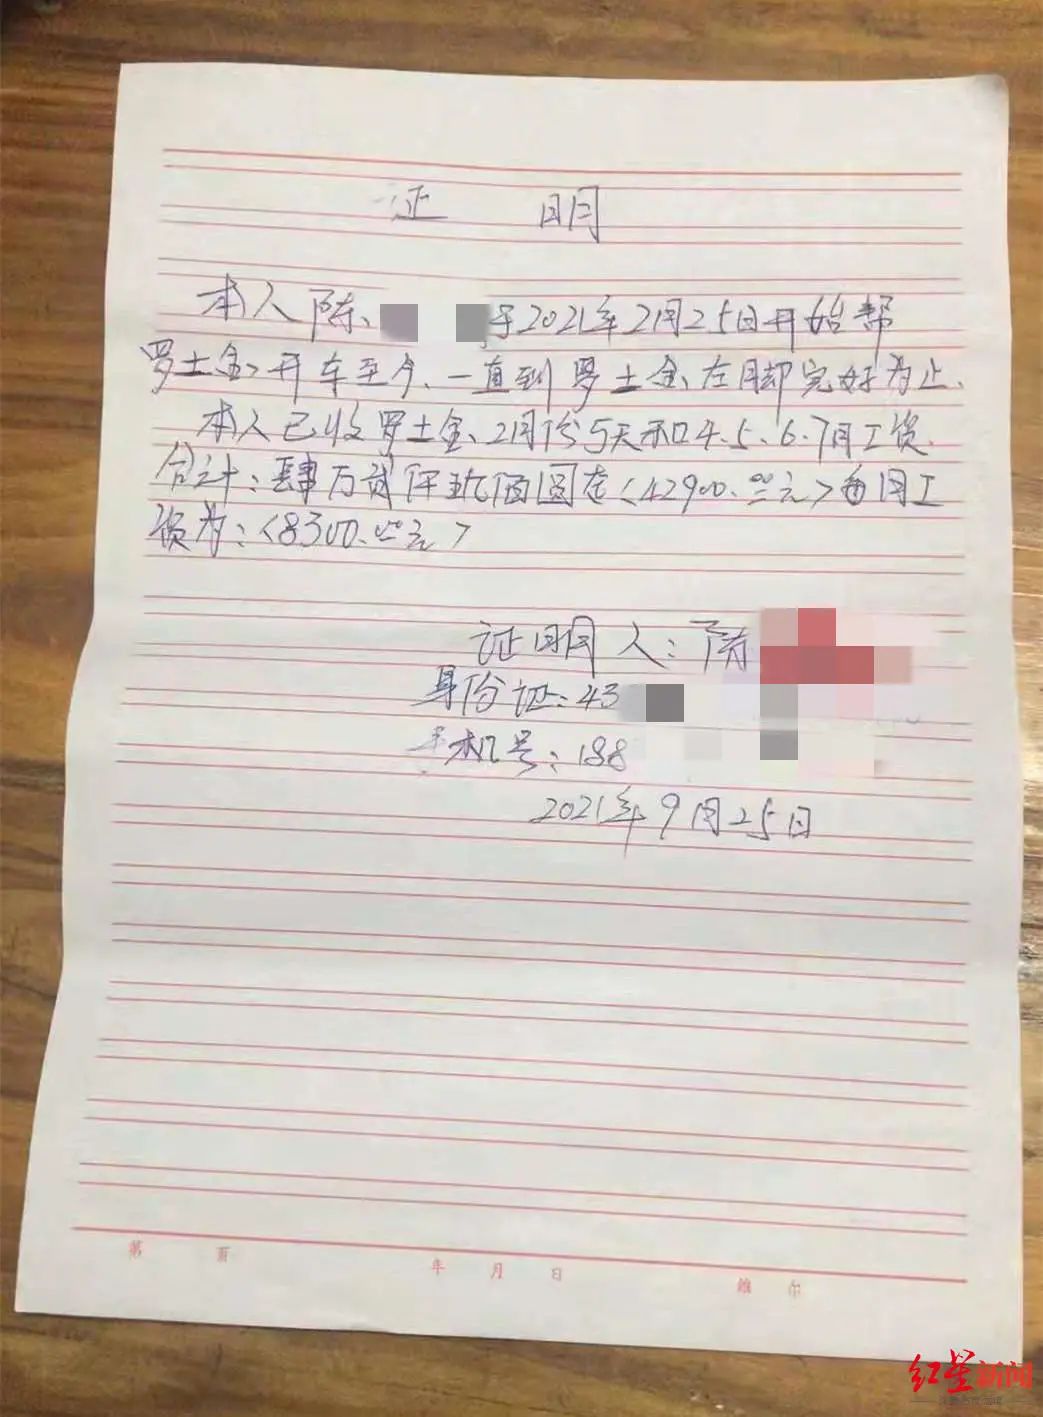 证 明
本人陈、 于2021年2月25日开始帮
罗土金、开车至今、一直到罗土金、左脚完好为止、
本人已收罗土金、2月份5天和4、5、6、7月工资、
合计：肆万贰仟玖佰圆整〈42900.00元〉每月工
资为：〈8300.00元〉
证明人：陈
身份证：43
手机号：188
2021年9月25日
第 页 年 月 日 维尔
红星新闻